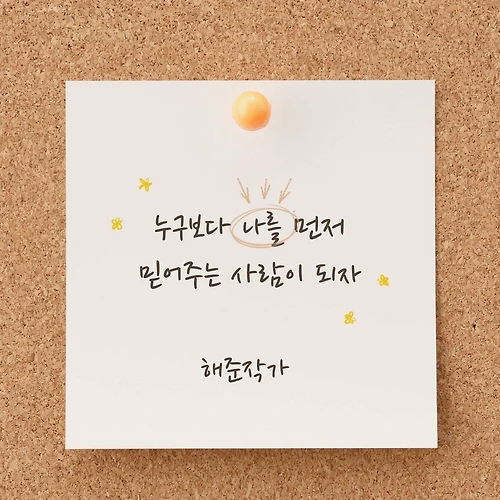 누구보다 나를 먼저
믿어주는 사람이 되자
해준작가